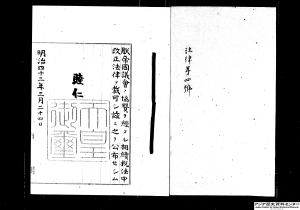 法律第四號
朕帝國議會ノ協賛ヲ經タル相續税法中
改正法律ヲ裁可シ茲ニ之ヲ公布セシム
睦仁
天皇
御璽
明治四十三年三月二十四日
アジア歴史資料センター